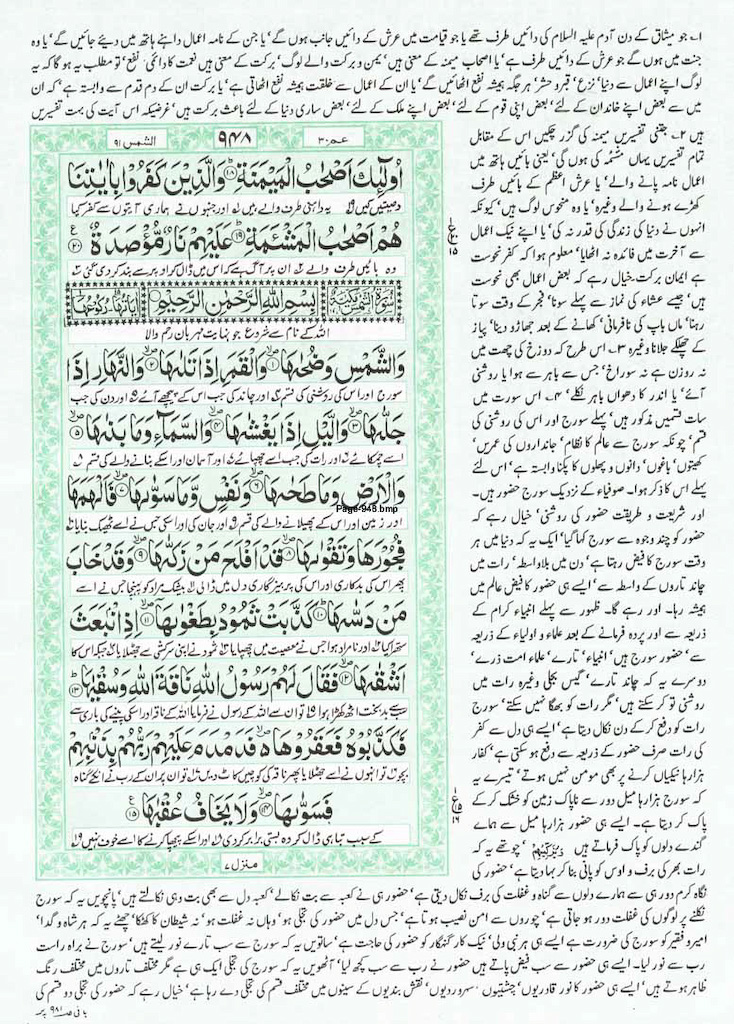 ۱؎ جو میثاق کے دن آدم علیہ السلام کی دائیں طرف تھے یا جو قیامت میں عرش کے دائیں جانب ہوں گے' یا جن کے نامہ اعمال داہنے ہاتھ میں دیئے جائیں گے' یا وہ
جنت میں ہوں گے جو عرش کے دائیں طرف ہے' یا اصحاب میمنہ کے معنی ہیں' یمن و برکت والے لوگ' برکت کے معنی ہیں نعمت کا دائمی' نفع' تو مطلب یہ ہو گا کہ یہ
لوگ اپنے اعمال سے دنیا' نزع' قبر و حشر' ہر جگہ ہمیشہ نفع اٹھائیں گے' یا ان کے اعمال سے خلقت ہمیشہ نفع اٹھاتی ہے' یا برکت ان کے دم قدم سے وابستہ ہے' کہ ان
میں سے بعض اپنے خاندان کے لئے' بعض اپنی قوم کے لئے' بعض اپنے ملک کے لئے' بعض ساری دنیا کے لئے باعث برکت ہیں' غرضیکہ اس آیت کی بہت تفسیریں
عم ۳۰
۹۴۸
الشمس ۹۱
اُولٰٓئِكَ اَصْحٰبُ الْمَیْمَنَةِ ۱۸ وَالَّذِیْنَ كَفَرُوْا بِاٰیٰتِنَا
وصیتیں کیں یہ داہنی طرف والے ہیں اور جنہوں نے ہماری آیتوں سے کفر کیا
هُمْ اَصْحٰبُ الْمَشْـَٔمَةِ ۱۹ عَلَیْهِمْ نَارٌ مُّؤْصَدَةٌ ۲۰
وہ بائیں طرف والے ان پر آگ ہے کہ اس میں ڈال کر اوپر سے بند کر دی گئی
سُوْرَةُ الشَّمْسِ مَكِّیَّةٌ
بِسْمِ اللّٰهِ الرَّحْمٰنِ الرَّحِیْمِ
اللہ کے نام سے شروع جو نہایت مہربان رحم والا
وَالشَّمْسِ وَضُحٰىهَا ۱ وَالْقَمَرِ اِذَا تَلٰىهَا ۲ وَالنَّهَارِ اِذَا
سورج اور اس کی روشنی کی قسم اور چاند کی جب اس کے پیچھے آئے اور دن کی جب
جَلّٰىهَا ۳ وَالَّیْلِ اِذَا یَغْشٰىهَا ۴ وَالسَّمَآءِ وَمَا بَنٰىهَا ۵
اسے چمکائے اور رات کی جب اسے چھپائے اور آسمان اور اسکے بنانے والے کی قسم
وَالْاَرْضِ وَمَا طَحٰىهَا ۶ وَنَفْسٍ وَّمَا سَوّٰىهَا ۷ فَاَلْهَمَهَا
Page-948.bmp
اور زمین اور اس کے پھیلانے والے کی قسم اور جان کی اور اسکی جس نے اسے ٹھیک بنایا
فُجُوْرَهَا وَتَقْوٰىهَا ۸ قَدْ اَفْلَحَ مَنْ زَكّٰىهَا ۹ وَقَدْ خَابَ
پھر اس کی بدکاری اور اس کی پرہیزگاری دل میں ڈالی بیشک مراد کو پہنچا جس نے اسے
مَنْ دَسّٰىهَا ۱۰ كَذَّبَتْ ثَمُوْدُ بِطَغْوٰىهَا ۱۱ اِذِ انْۢبَعَثَ
ستھرا کیا اور نامراد ہوا جس نے معصیت میں چھپایا ثمود نے اپنی سرکشی سے جھٹلایا جبکہ اس کا
اَشْقٰىهَا ۱۲ فَقَالَ لَهُمْ رَسُوْلُ اللّٰهِ نَاقَةَ اللّٰهِ وَسُقْیٰهَا ۱۳
سب سے بدبخت اٹھ کھڑا ہوا تو ان سے اللہ کے رسول نے فرمایا اللہ کے ناقہ اور اسکی پینے کی باری سے
فَكَذَّبُوْهُ فَعَقَرُوْهَا فَدَمْدَمَ عَلَیْهِمْ رَبُّهُمْ بِذَنْۢبِهِمْ
بچو تو انہوں نے اسے جھٹلایا پھر ناقہ کی کوچیں کاٹ دیں تو ان پر ان کے رب نے انکے گناہ
فَسَوّٰىهَا ۱۴ وَلَا یَخَافُ عُقْبٰهَا ۱۵
کے سبب تباہی ڈال کر وہ بستی برابر کر دی اور اسکے پیچھا کرنے کا اسے خوف نہیں
منزل ۷
ہیں ۲؎ جتنی تفسیریں میمنہ کی گزر چکیں اس کے مقابل
تمام تفسیریں یہاں مشئمہ کی ہوں گی' یعنی بائیں ہاتھ میں
اعمال نامہ پانے والے' یا عرش اعظم کے بائیں طرف
کھڑے ہونے والے وغیرہ' یا وہ منحوس لوگ ہیں' کیونکہ
انہوں نے دنیا کی زندگی کی قدر نہ کی' یا اپنے نیک اعمال
سے آخرت میں فائدہ نہ اٹھایا' معلوم ہوا کہ کفر نحوست
ہے ایمان برکت۔ خیال رہے کہ بعض اعمال بھی نحوست
ہیں' جیسے عشاء کی نماز سے پہلے سونا' فجر کے وقت سوتا
رہنا' ماں باپ کی نافرمانی' کھانے کے بعد جھاڑو دینا' پیاز
کے چھلکے جلانا وغیرہ ۳؎ اس طرح کہ دوزخ کی چھت میں
نہ روزن ہے نہ سوراخ' جس سے باہر سے ہوا یا روشنی
آئے' یا اندر کا دھواں باہر نکلے' ۴؎ اس سورت میں
سات قسمیں مذکور ہیں' پہلے سورج اور اس کی روشنی کی
قسم' چونکہ سورج سے عالم کا نظام' جانداروں کی عمریں'
کھیتوں' باغوں' دانوں و پھلوں کا پکنا وابستہ ہے' اس لئے
پہلے اس کا ذکر ہوا۔ صوفیاء کے نزدیک سورج حضور ہیں۔
اور شریعت و طریقت حضور کی روشنی' خیال رہے کہ
حضور کو چند وجوہ سے سورج کہا گیا' ایک یہ کہ دنیا میں ہر
وقت سورج کا فیض رہتا ہے' دن میں بلاواسطہ' رات میں
چاند تاروں کے واسطہ سے' ایسے ہی حضور کا فیض عالم میں
ہمیشہ رہا۔ اور رہے گا۔ ظہور سے پہلے انبیاء کرام کے
ذریعہ سے اور پردہ فرمانے کے بعد علماء و اولیاء کے ذریعہ
سے' حضور سورج ہیں' انبیاء' تارے' علماء امت ذرے'
دوسرے یہ کہ چاند تارے' گیس بجلی وغیرہ رات میں
روشنی تو کر سکتے ہیں' مگر رات کو بھگا نہیں سکتے' سورج
رات کو دفع کر کے دن نکال دیتا ہے' ایسے ہی دل سے کفر
کی رات صرف حضور کے ذریعہ سے دفع ہو سکتی ہے' کفار
ہزارہا نیکیاں کرنے پر بھی مومن نہیں ہوتے' تیسرے یہ
کہ سورج ہزارہا میل دور سے ناپاک زمین کو خشک کر کے
پاک کر دیتا ہے۔ ایسے ہی حضور ہزارہا میل سے ہمارے
گندے دلوں کو پاک فرماتے ہیں وَیُزَكِّیْهِمْ چوتھے یہ کہ
رات بھر کی برف و اوس کو پانی بنا کر بہا دیتا ہے' حضور کی
نگاہ کرم دور ہی سے ہمارے دلوں سے گناہ و غفلت کی برف نکال دیتی ہے' حضور ہی نے کعبہ سے بت نکالے' کعبہ دل سے بھی بت وہی نکالتے ہیں' پانچویں یہ کہ سورج
نکلنے پر لوگوں کی غفلت دور ہو جاتی ہے' چوروں سے امن نصیب ہوتا ہے' جس دل میں حضور کی تجلی ہو' وہاں نہ غفلت ہو' نہ شیطان کا کھٹکا' چھٹے یہ کہ ہر شاہ و گدا'
امیر و فقیر کو سورج کی ضرورت ہے ایسے ہی ہر نبی ولی' نیک کار گنہگار کو حضور کی حاجت ہے' ساتویں یہ کہ سورج سے سب تارے نور لیتے ہیں' سورج نے براہ راست
رب سے نور لیا۔ ایسے ہی حضور سے سب فیض پاتے ہیں حضور نے رب سے سب کچھ لیا' آٹھویں یہ کہ سورج کی تجلی ایک ہی ہے مگر مختلف تاروں میں مختلف رنگ
ظاہر ہوتے ہیں' ایسے ہی حضور کا نور قادریوں' چشتیوں' سہروردیوں' نقشبندیوں کے سینوں میں مختلف قسم کی تجلی دے رہا ہے' خیال رہے کہ حضور کی تجلی دو قسم کی
باقی صفحہ ۹۸۱ پر